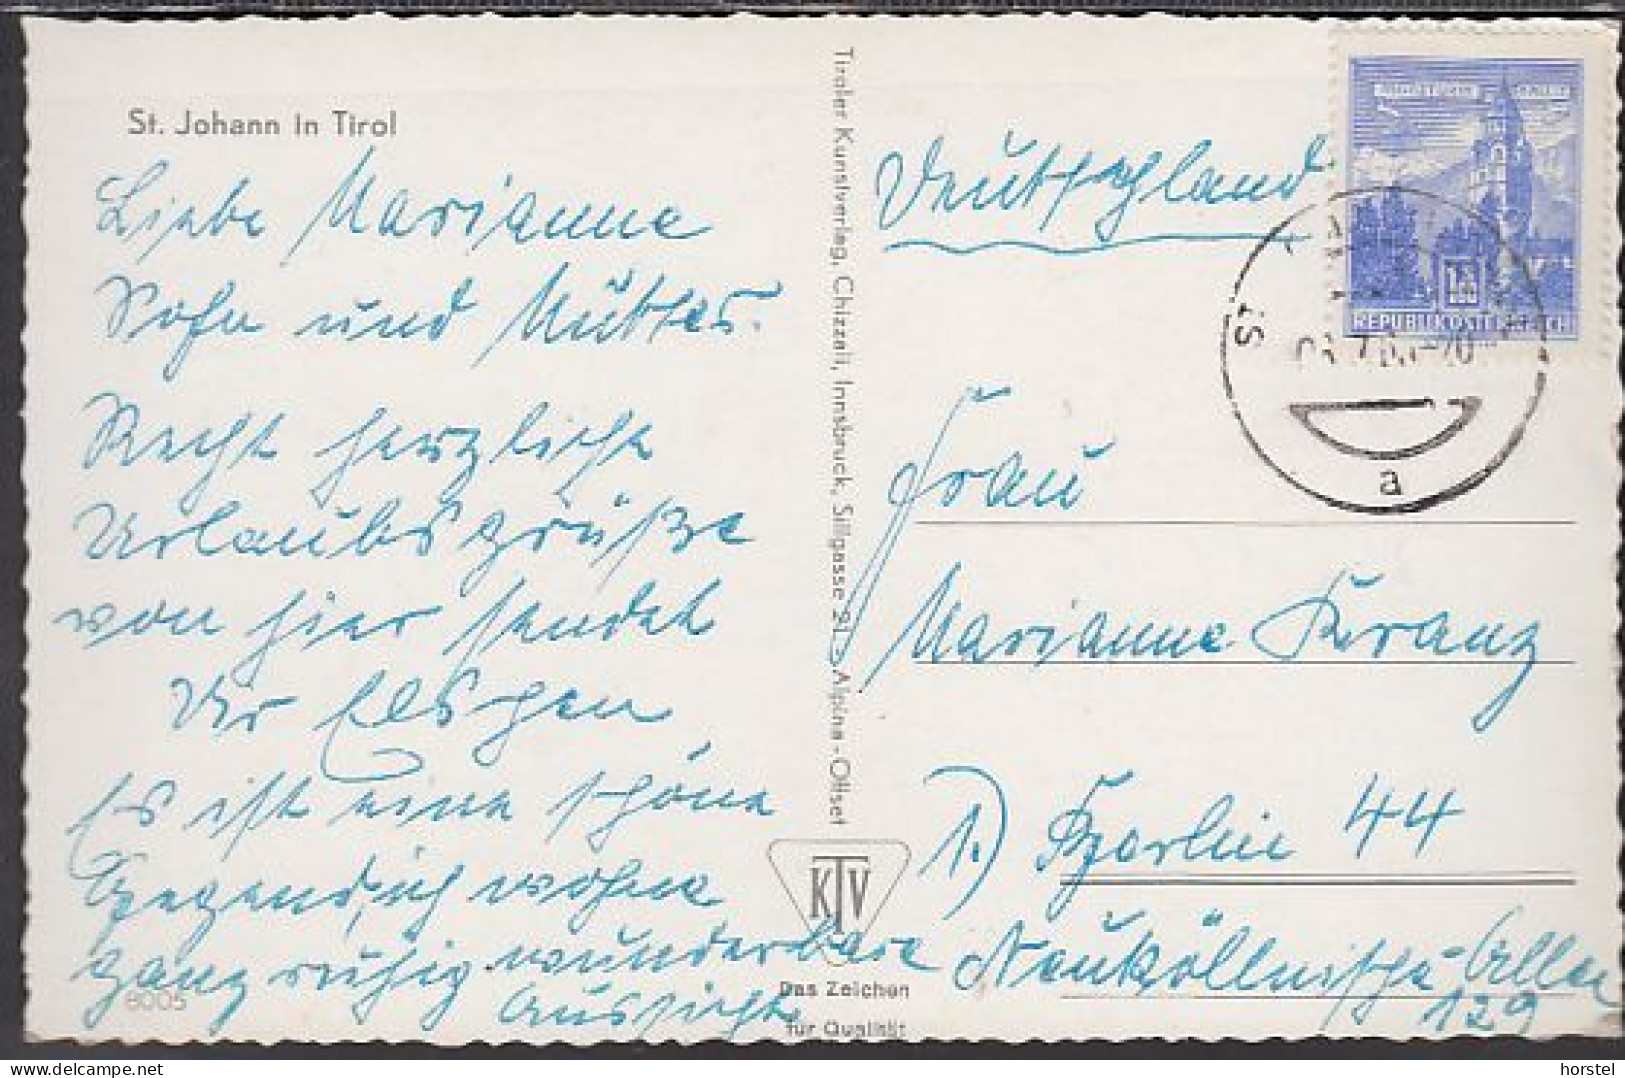 St. Johann in Tirol
Liebe Marianne
und Mutter.
Recht herzliche
Urlaubsgrüße
von hier sendet
Dir Elschen
Es ist eine schöne
Gegend, ich wohne
ganz ruhig wunderbare
Aussicht
8005
Tiroler Kunstverlag, Chizzali, Innsbruck, Sillgasse 21 - Alpina-Offset
KTV
Das Zeichen
für Qualität
REPUBLIK ÖSTERREICH
St.
a
Deutschland
Frau
Marianne Kranz
1) Berlin 44
Neuköllnische-Allee
129
horstel